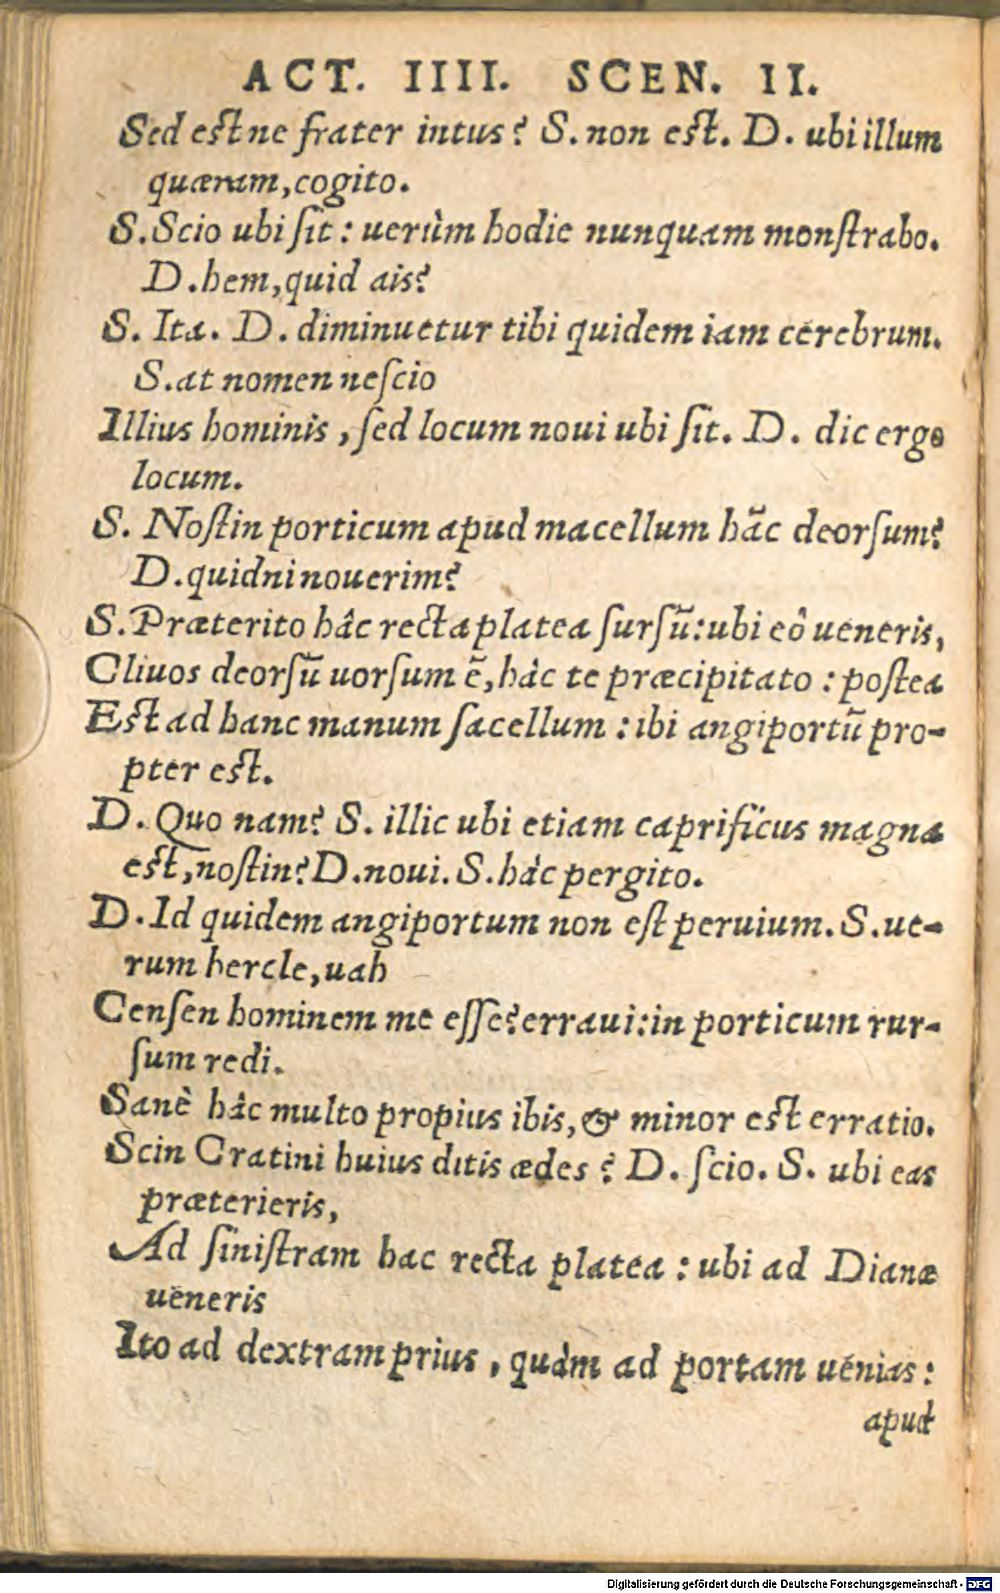 ACT. IIII. SCEN. II.
Sed estne frater intus? S. non est. D. ubi illum
quæram, cogito.
S. Scio ubi ſit: uerùm hodie nunquam monſtrabo.
D. hem, quid ais?
S. Ita. D. diminuetur tibi quidem iam cerebrum.
S. at nomen neſcio
Illius hominis, ſed locum noui ubi ſit. D. dic ergo
locum.
S. Noſtin porticum apud macellum hãc deorſum?
D. quidni nouerim?
S. Præterito hâc recta platea ſurſũ: ubi eò ueneris,
Cliuos deorſũ uorſum ẽ, hàc te præcipitato: poſtea
Est ad hanc manum ſacellum: ibi angiportũ pro-
pter est.
D. Quo nam? S. illic ubi etiam caprificus magna
est, noſtin? D. noui. S. hàc pergito.
D. Id quidem angiportum non eſt peruium. S. ue-
rum hercle, uah
Cenſen hominem me eſſe? erraui: in porticum rur-
ſum redi.
Sanè hàc multo propius ibis, & minor est erratio.
Scin Cratini huius ditis ædes? D. ſcio. S. ubi eas
præterieris,
Ad ſiniſtram hac recta platea: ubi ad Dianæ
ueneris
Ito ad dextram prius, quàm ad portam uenias:
apud
Digitalisierung gefördert durch die Deutsche Forschungsgemeinschaft - DFG